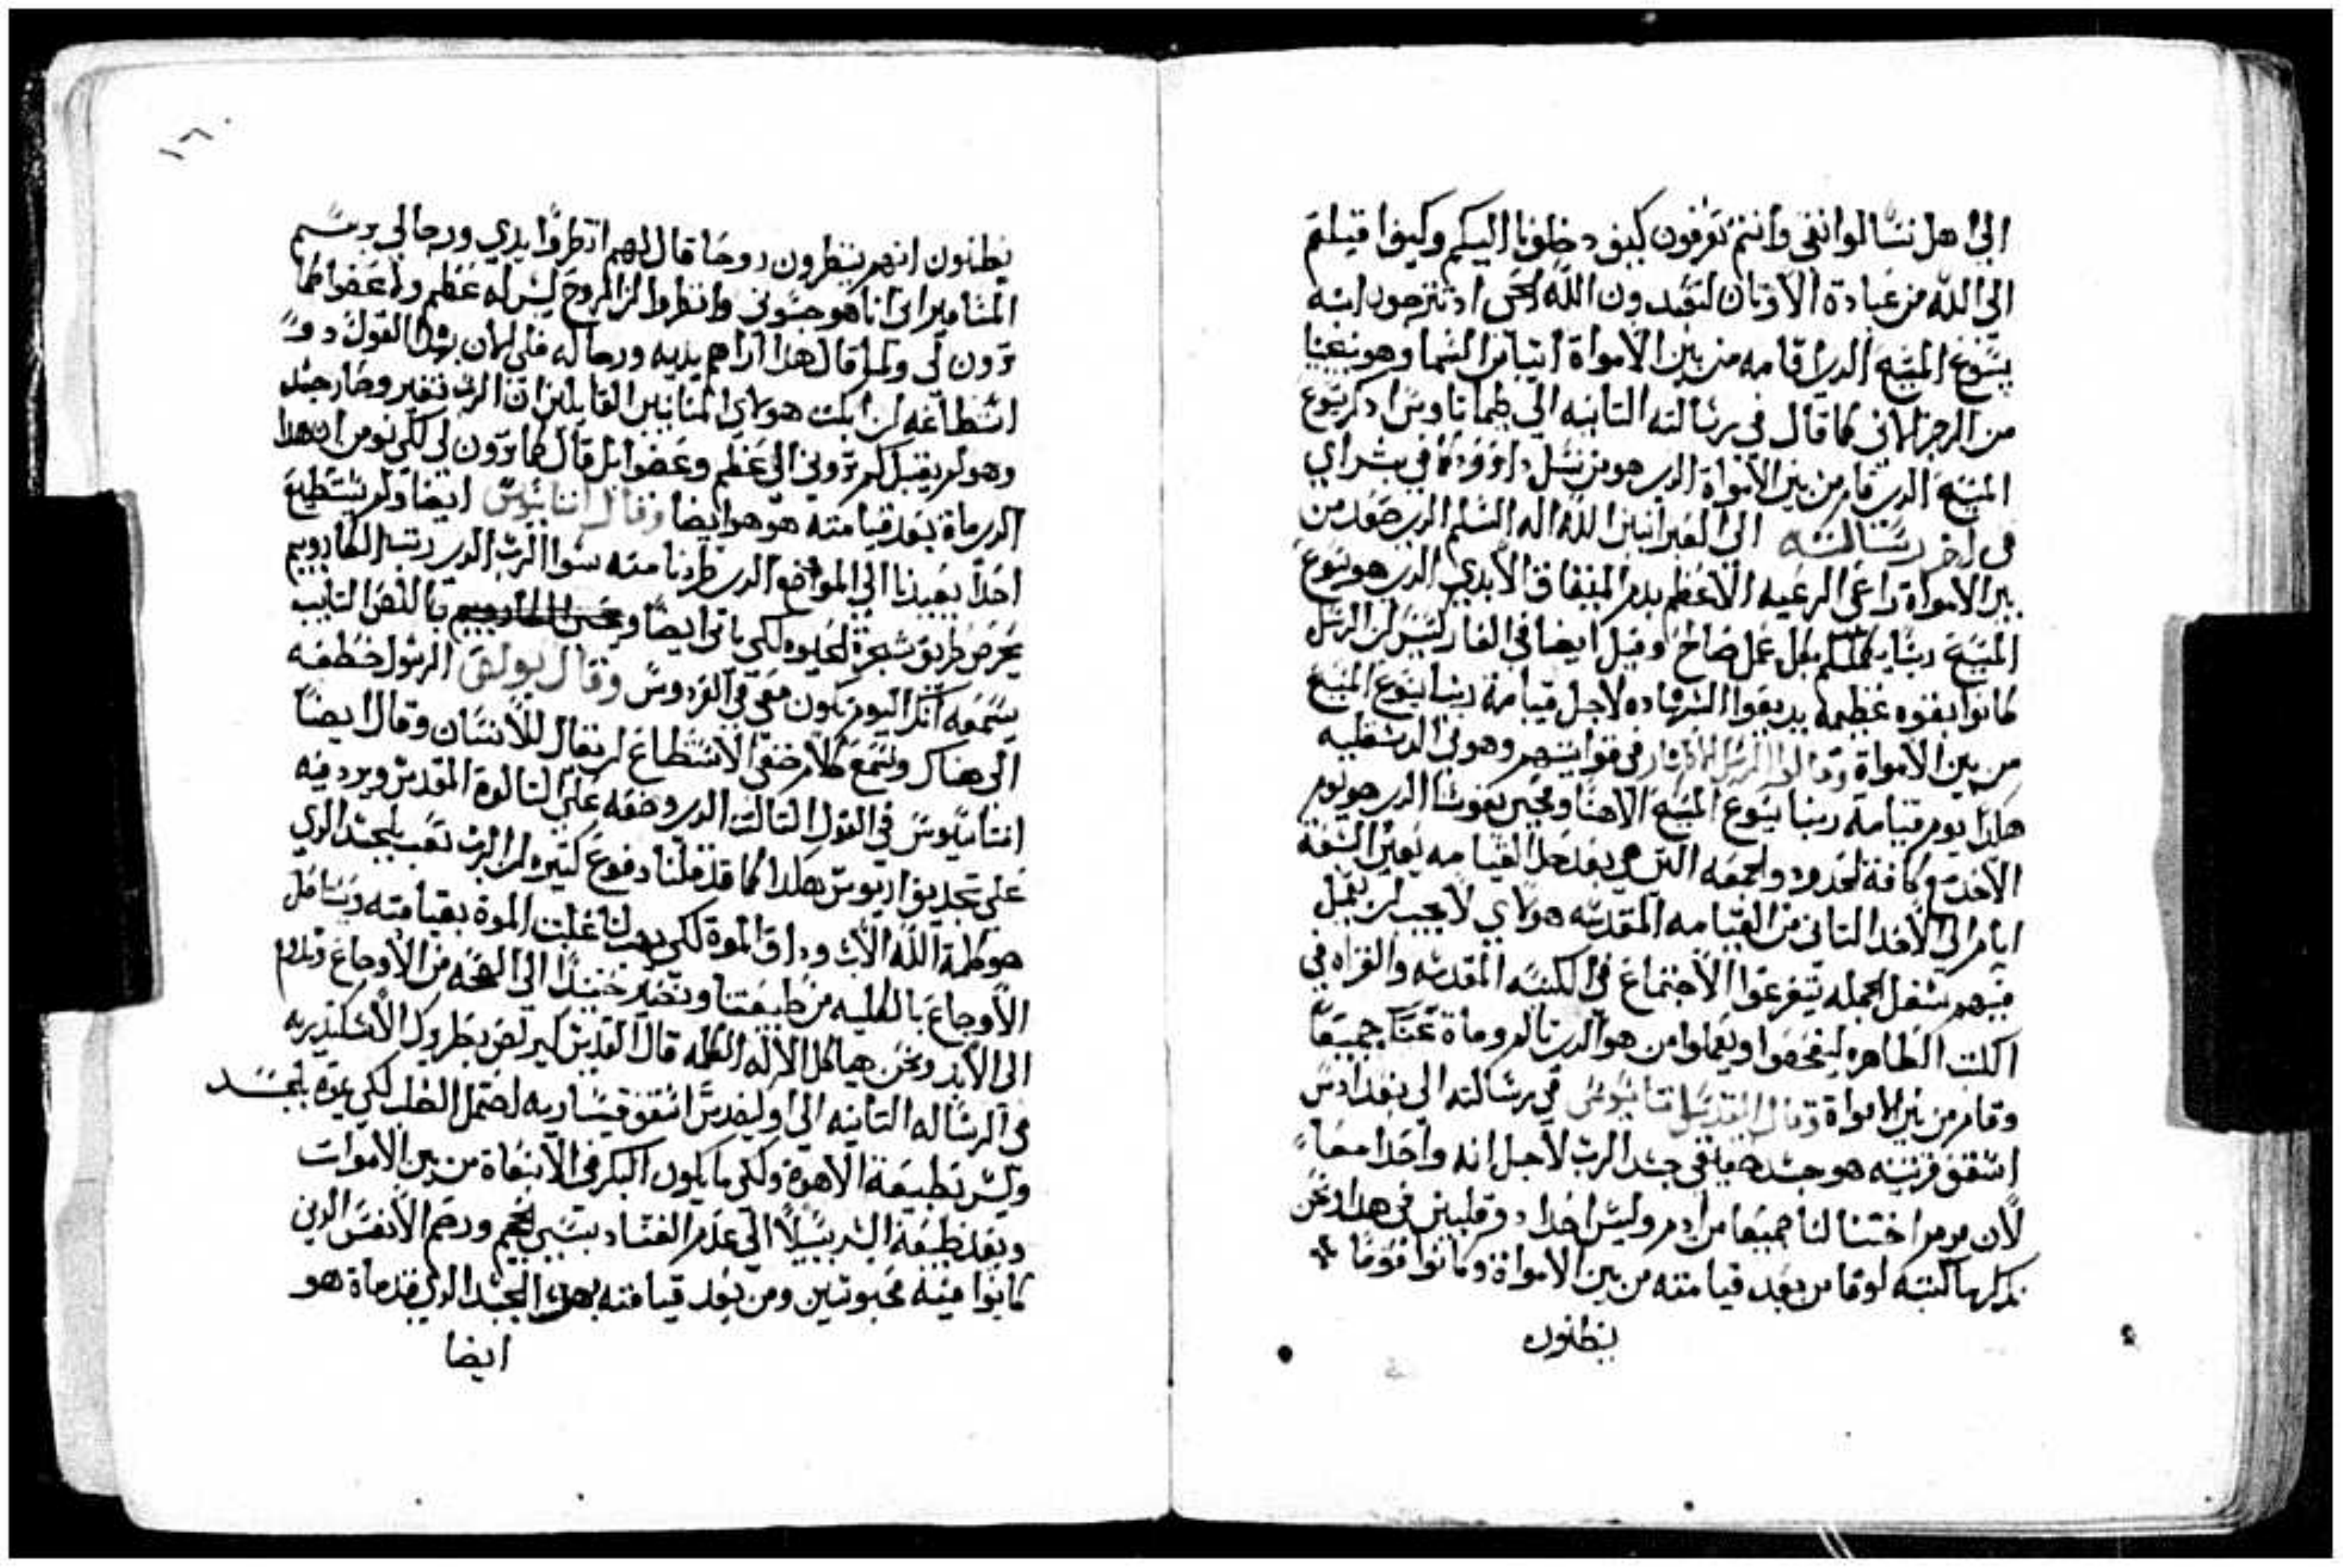 الي اهل تسالوانقي وانتم تعرفون كيف دخلونا اليكم وكيف اقبلتم
الي الله من عبادة الاوتان لتعبدون الله الحي اد تترجون ابنه
يسوع المسيح الدي اقامه من بين الامواة اتيا من السما وهو نجينا
من الرجز الاتي كما قال في رسالته التانيه الي طيماتاوس ادكر يسوع
المسيح الدي قام من بين الامواة الدي هو من نسل داوود كما في بشراي
في اخر رسالته الي العبرانيين الله اله السلم الدي صعد من
بين الامواة راعي الرعيه الاعظم بدم الميتاق الابدي الدي هو يسوع
المسيح ربنا يكملكم بكل عمل صالح وقيل ايضا في الابركسيس ان الرسل
كانوا بقوه عظيمه يديعوا الشهاده لاجل قيامة ربنا يسوع المسيح
من بين الامواة وقالوا الرسل الاطهار في قوانينهم وهوني
هكدا يوم قيامة ربنا يسوع المسيح الاهنا ومحيي نفوسنا الدي هو يوم
الاحد وكافة الحدود والجمعه التي هي بعد القيامه يعني السبعة
ايام الي الاحد التاني من القيامه المقدسه هولاي لا يجب ان يعمل
فيهم شغل الجمله يتفرغوا الاجتماع في الكنيسه المقدسه والقراه في
الكتب الطاهره ليفحصوا ويعلموا من هو الدي تالم ومات عنا جميعا
وقام من بين الامواة وقال القديس اتناسيوس في رسالته الي
اسقف قرنتيه هو جسد حقيقي جسد الرب لاجل انه واحدا معا
لان مريم اختنا لنا جميعا من ادم وليس احدا في هدا ونحن
ندكر ما كتبه لوقا من بعد قيامته من بين الامواة وكانوا قوما
يظنون
١٦٠
يظنون انهم ينظرون روحا قال لهم انظروا يدي ورجالي برسم
المسامير اني انا هو جسوني وانظروا لان الروح ليس له عظم ولا عضوا كما
ترون لي ولما قال هدا اراهم يديه ورجاله فلي الان بهدا القول
استطاعه ان ابكت هولاي المنانيين القايلين ان الرب تغير وصار جسد
وهو لم يقبل كم تروني الي عظم وعضوا بل قال كما ترون لي لكي نومن ان هدا
الدي مات بعد قيامته هو هو ايضا وقال اتناسيوس ايضا ولم يستطيع
احدا يعيدنا الي المواضع الدي طردنا منه سوا الرب الدي رتب الكاروبيم
يحرص طريق شجرة الحيوه لكي ياتي ايضا باللص التايب
يسمعه انك اليوم تكون معي في الفردوس وقال بولس الرسول خطفه
الي هناك وسمع كلام خفي لا استطاع ان يقال للانسان وقال ايضا
اتناسيوس في القول التالت الدي وضعه علي التالوة المقدس ويرد فيه
علي تجديف اريوس هكدا كما قد قلنا دفوع كتيره ان الرب تعب بالجسد الدي
هو كلمة الله الاب وداق الموة لكي غلبت الموة بقيامته
الاوجاع بالكليه من طبيعتنا ونصير حينيدا الي الصحه من الاوجاع وندوم
الي الابد ونحن هياكل الاله الكلمه قال القديس كيرلص بطروك الاسكندريه
في الرسالة التانيه الي اسقف قيساريه احتمل الصلب لكي يموت بالجسد
وليس بطبيعة الاهوة ولكي ما يكون البكر في الانبعاة من بين الاموات
ويعد طبيعة البشر سبيلا الي عدم الفساد بسبي الجحيم ورحم الانفس الدين
كانوا فيه محبوسين ومن بعد قيامته بهدا الجسد الدي قد ماة هو
ايضا